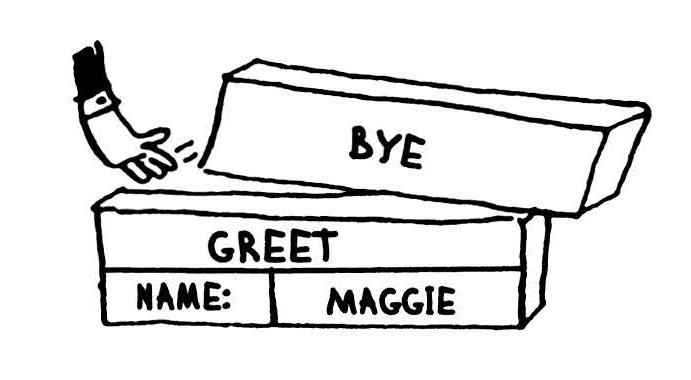 BYE
GREET
NAME: MAGGIE